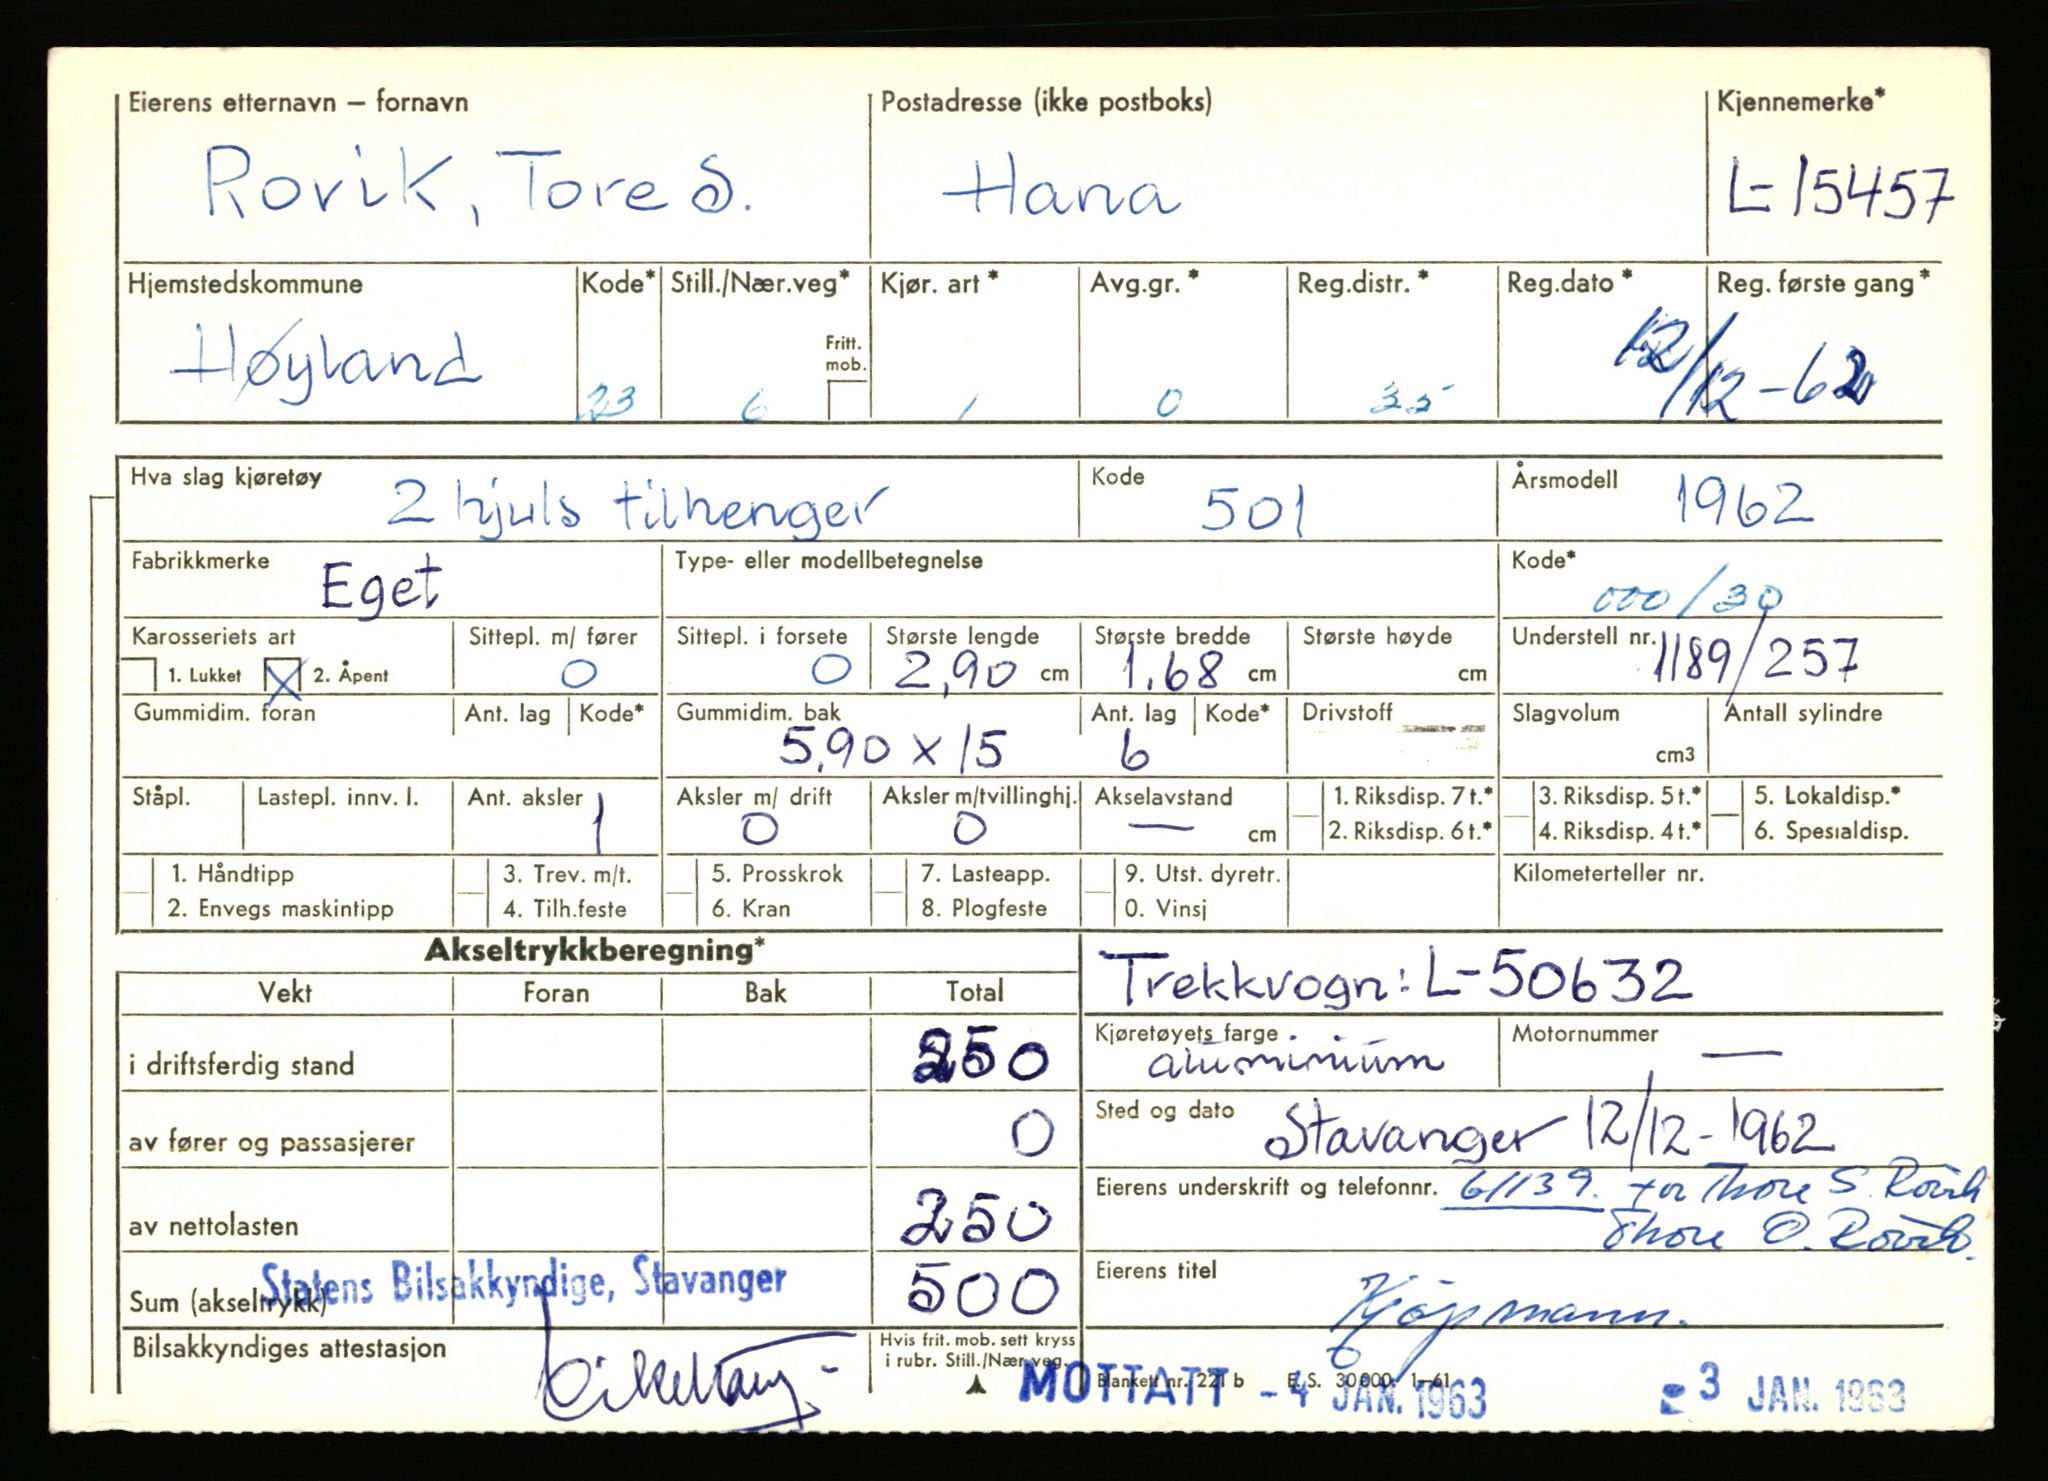 Eierens etternavn – fornavn Postadresse (ikke postboks) Kjennemerke*
Rovik, Tore S. Hana L-15457
Hjemstedskommune Kode* Still./Nær.veg* Kjør. art* Avg.gr.* Reg.distr.* Reg.dato* Reg. første gang*
Fritt. mob.
Høyland 23 6 1 0 35 12/12-62
Hva slag kjøretøy 2 hjuls tilhenger Kode 501 Årsmodell 1962
Fabrikkmerke Eget Type- eller modellbetegnelse Kode* 000/30
Karosseriets art Sittepl. m/ fører Sittepl. i forsete Største lengde Største bredde Største høyde Understell nr. 1189/257
1. Lukket X 2. Åpent 0 0 2,90 cm 1.68 cm cm
Gummidim. foran Ant. lag Kode* Gummidim. bak Ant. lag Kode* Drivstoff Slagvolum Antall sylindre
5,90 x 15 6 cm3
Ståpl. Lastepl. innv. l. Ant. aksler Aksler m/ drift Aksler m/tvillinghj. Akselavstand 1. Riksdisp. 7 t.* 3. Riksdisp. 5 t.* 5. Lokaldisp.*
1 0 0 — cm 2. Riksdisp. 6 t.* 4. Riksdisp. 4 t.* 6. Spesialdisp.
1. Håndtipp 3. Trev. m/t. 5. Prosskrok 7. Lasteapp. 9. Utst. dyretr. Kilometerteller nr.
2. Envegs maskintipp 4. Tilh.feste 6. Kran 8. Plogfeste 0. Vinsj
Akseltrykkberegning*
Trekkvogn: L-50632
Vekt Foran Bak Total
Kjøretøyets farge Motornummer
i driftsferdig stand 250 aluminium —
Sted og dato Stavanger 12/12-1962
av fører og passasjerer 0
Eierens underskrift og telefonnr. 61139. for Thore S. Rövik
av nettolasten 250 Thore O. Rövik.
Eierens titel
Statens Bilsakkyndige, Stavanger
Sum (akseltrykk) 500 Kjøpmann.
Bilsakkyndiges attestasjon Hvis frit. mob. sett kryss
i rubr. Still./Nær.veg.
Blankett nr. 221 b E. S. 30 000. 1-61
MOTTATT - 4 JAN. 1963 3 JAN. 1963